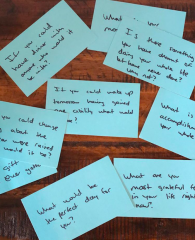 If you could
have dinner with
anyone who would it
be with?
What
you
mos
Is there something
you have dreamt of
doing for a long
but have never done it
Why not?
If you could wake up
tomorrow having gained
one ability what would
it be?
you could change
what the
you were raised
would it be?
What is
accomplish
your
gift
ever given
What would be
the perfect day for
you?
What are you
most grateful for
in your life right
now?